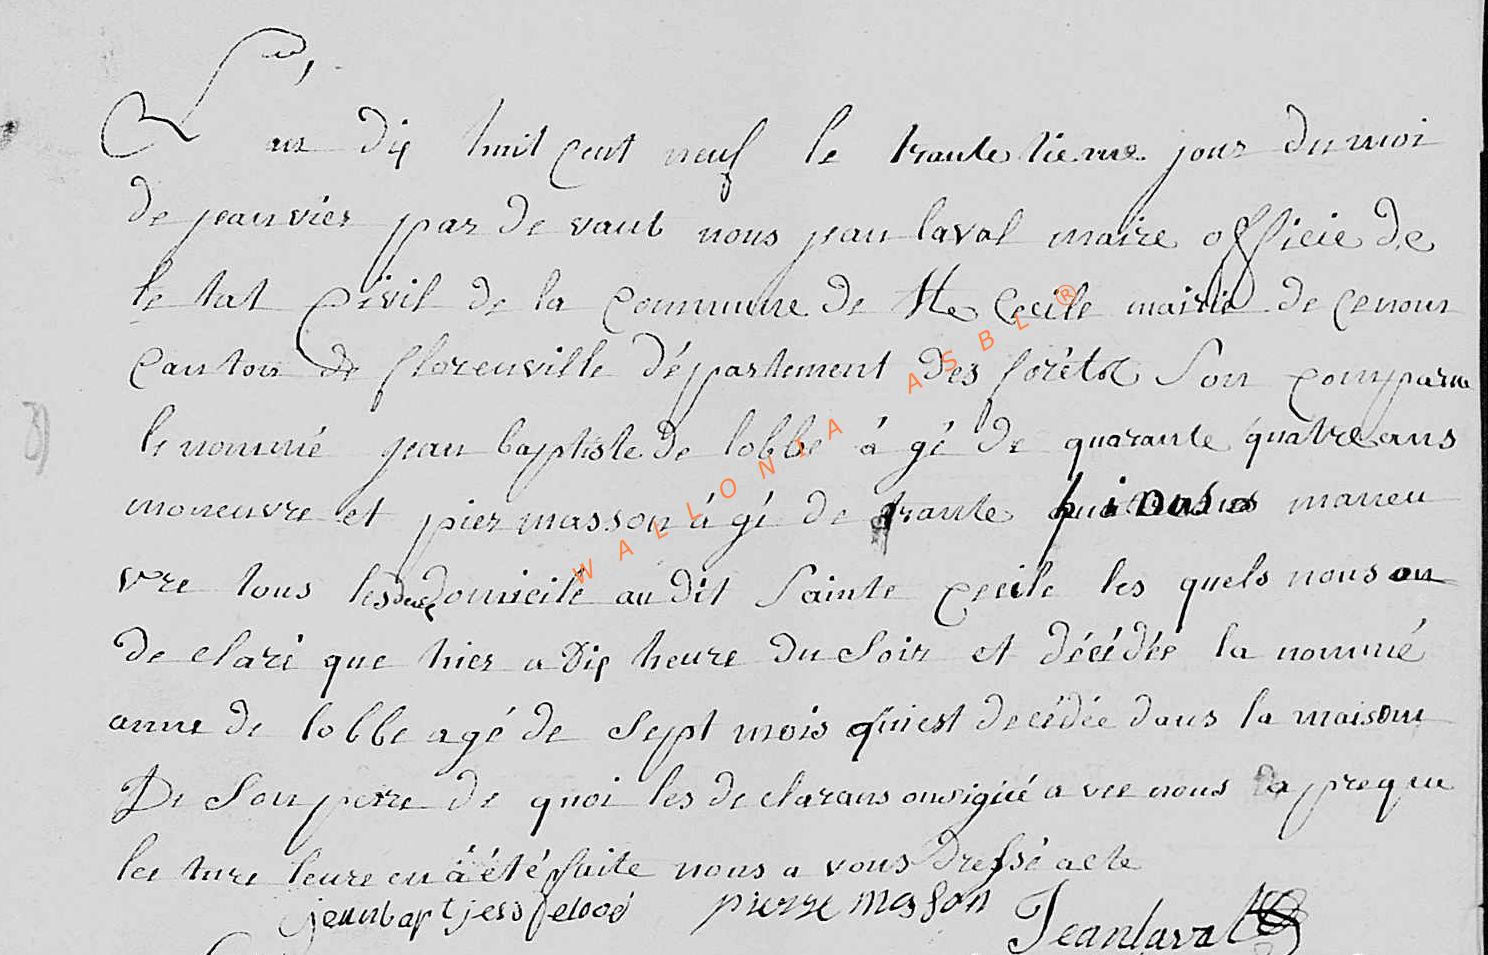 L'an dix huit cent neuf le trante tieme jour du moi
de jeanvier par de vant nous jean laval maire officie de
le tat Civil de la Commune de Ste Cecile mairie de ce nom
Canton de florenville département des foréts Son comparu
le nommé jean baptiste de lobbe á gé de quarante quatre ans
moneuvre et pier masson á gé de trante maneu
vre tous les deux domicile audit Sainte Cecile les quels nous on
de claré que hier a dix heure du Soir et décédée la nommé
anne de lobbe agé de Sept mois qui est decédée dans la maison
De Son perre de quoi les de clarans on signié a vec nous apreque
lecture leure en á été faite nous a vons Dressé acte
jean baptjess delobe pierre masson Jean laval
WALLONIA ASBL ®